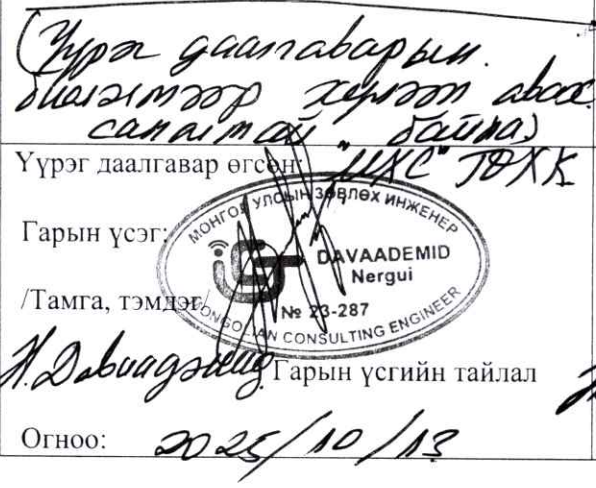 (Үүрэг даалгаварын
биелэлтээр хүлээн авах
саналтай байна)
Үүрэг даалгавар өгсөн: "ИХС" ТӨХК
Гарын үсэг:
МОНГОЛ УЛСЫН ЗӨВЛӨХ ИНЖЕНЕР
DAVAADEMID
Nergui
/Тамга, тэмдэг/
№ 23-287
MONGOLIAN CONSULTING ENGINEER
Н.Даваадэмид Гарын үсгийн тайлал
Огноо: 2025/10/13